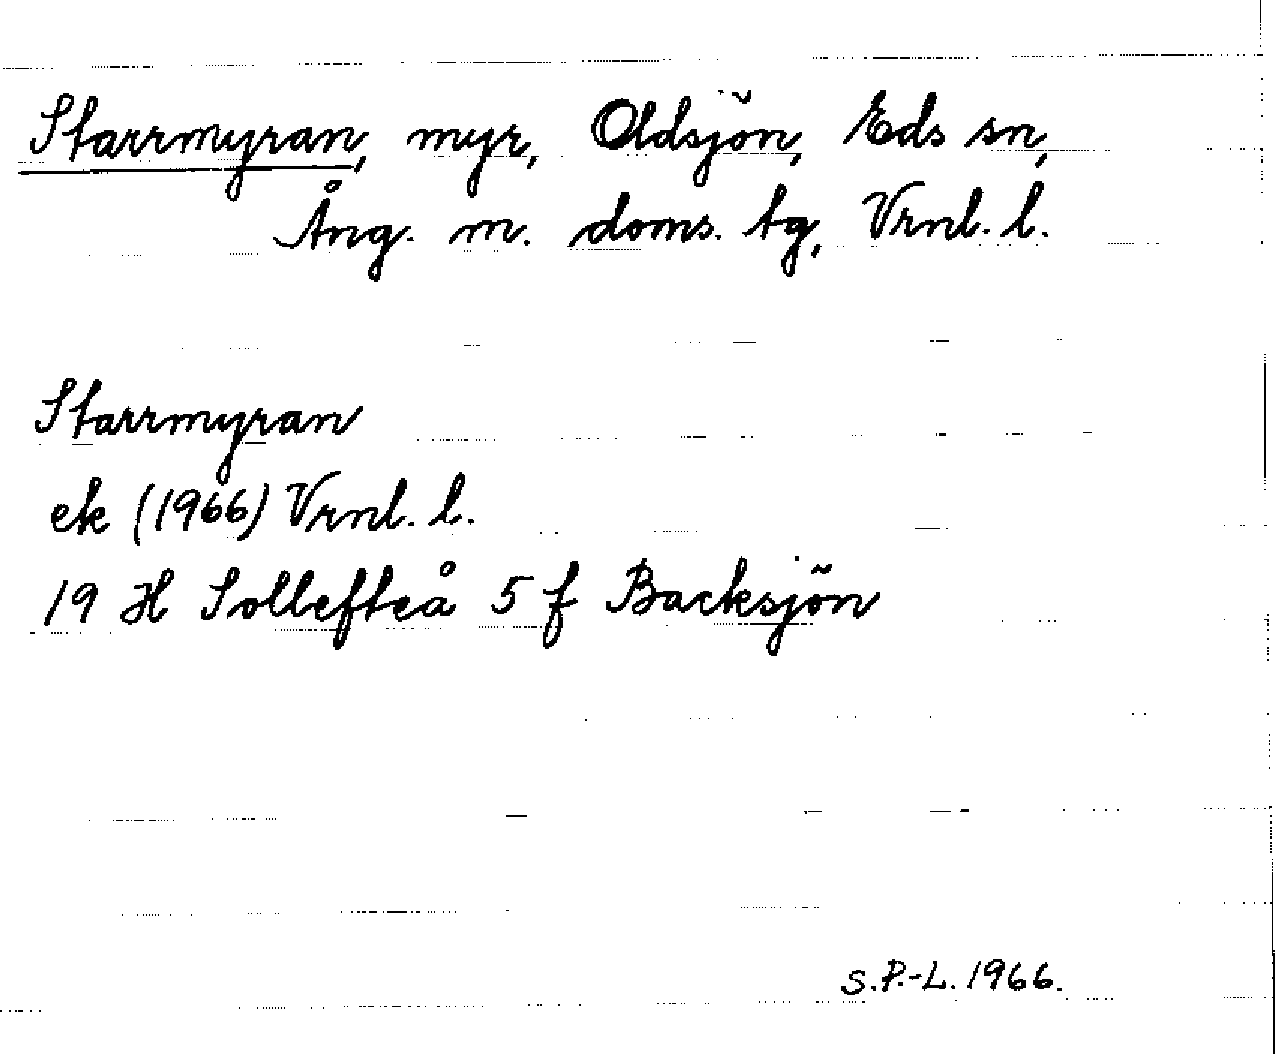 Starrmyran, myr, Oldsjön, Eds sn,
Ång. m. doms. tg, Vrnl. l.
Starrmyran
ek (1966) Vrnl. l.
19 H Sollefteå 5 f Backsjön
S.P.-L. 1966.